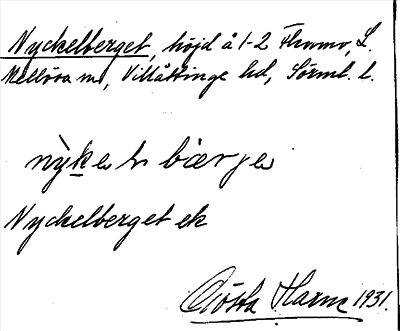 Nyckelberget, höjd å 1-2 Flumo, L.
Mellösa sn, Villåttinge hd, Sörml. l.
nỳkel bærje
Nyckelberget ek
Gösta Harne 1931.